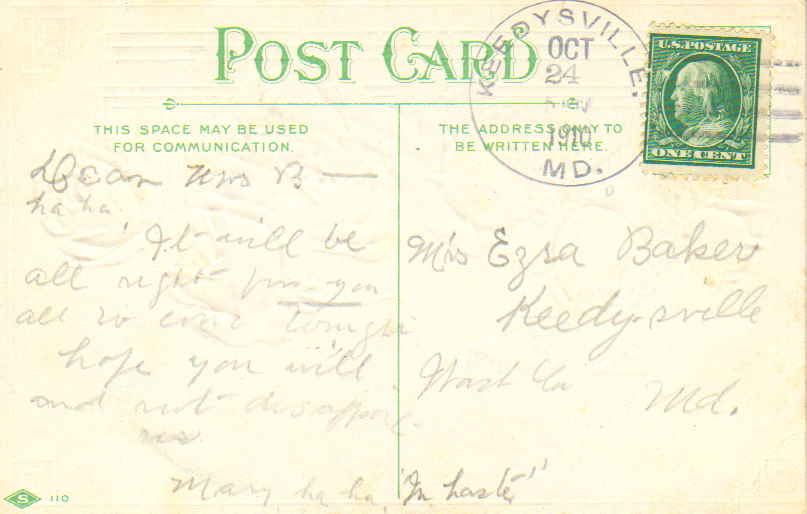 POST CARD
KEEDYSVILLE,
OCT
24
1910
MD.
U.S. POSTAGE
ONE CENT
THIS SPACE MAY BE USED
FOR COMMUNICATION.
THE ADDRESS ONLY TO
BE WRITTEN HERE.
Dear Mrs B —
ha ha.
It will be
all right for you
all to come
hope you will
and not
us
Mary, ha ha, "In haste"
Mrs Ezra Baker
Keedysville
Wash Co Md.
S 110